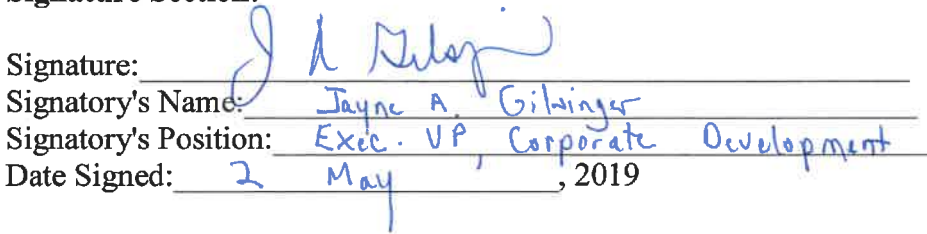 Signature:
Signatory's Name: Jayne A. Gilsinger
Signatory's Position: Exec. VP, Corporate Development
Date Signed: 2 May, 2019